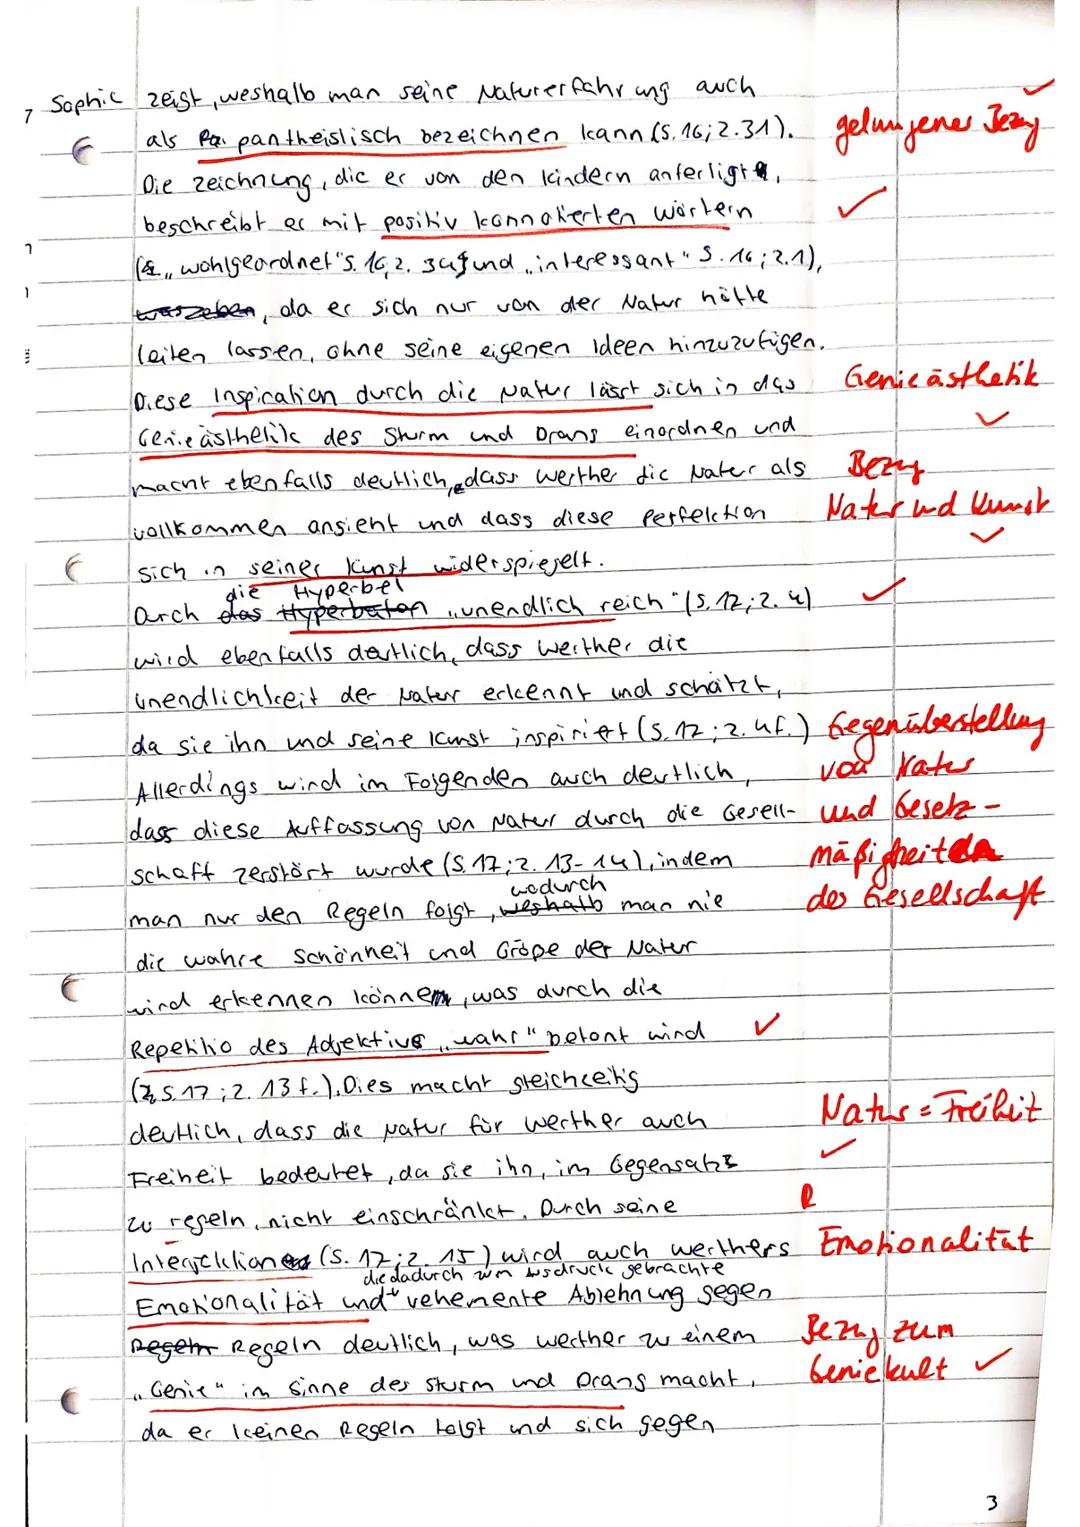 7 Sophie zeigt, weshalb man seine Naturerfahrung auch
als pantheistisch bezeichnen kann (S. 16; Z. 31). gelungener Bezug
Die Zeichnung, die er von den Kindern anfertigt,
beschreibt er mit positiv konnotierten Wörtern
(„wohlgeordnet" S. 16, Z. 34f und „interessant" S. 16; Z. 1),
, da er sich nur von der Natur hätte
leiten lassen, ohne seine eigenen Ideen hinzuzufügen.
Diese Inspiration durch die Natur lässt sich in das Genieästhetik
Genieästhetik des Sturm und Drans einordnen und
macht ebenfalls deutlich, dass Werther die Natur als Bezug
vollkommen ansieht und dass diese Perfektion Natur und Kunst
sich in seiner Kunst widerspiegelt.
die Hyperbel
Durch das Hyperbaton „unendlich reich" (S. 12; Z. 4)
wird ebenfalls deutlich, dass Werther die
Unendlichkeit der Natur erkennt und schätzt,
da sie ihn und seine Kunst inspiriert (S. 12; Z. 4f.) Gegenüberstellung
Allerdings wird im Folgenden auch deutlich, von Natur
dass diese Auffassung von Natur durch die Gesell- und Gesetz-
schaft zerstört wurde (S. 17; Z. 13-14), indem mäßigkeit
wodurch
man nur den Regeln folgt, weshalb man nie der Gesellschaft
die wahre Schönheit und Größe der Natur
wird erkennen können, was durch die
Repetitio des Adjektivs „wahr" betont wird
(S. 17; Z. 13 f.). Dies macht gleichzeitig
deutlich, dass die Natur für Werther auch Natur = Freiheit
Freiheit bedeutet, da sie ihn, im Gegensatz
zu regeln, nicht einschränkt. Durch seine R
Interjektion (S. 17; Z. 15) wird auch Werthers Emotionalität
die dadurch zum Ausdruck gebrachte
Emotionalität und vehemente Ablehnung gegen
Regeln Regeln deutlich, was Werther zu einem Bezug zum
„Genie" im Sinne des Sturm und Drans macht, Geniekult
da er keinen Regeln folgt und sich gegen
3